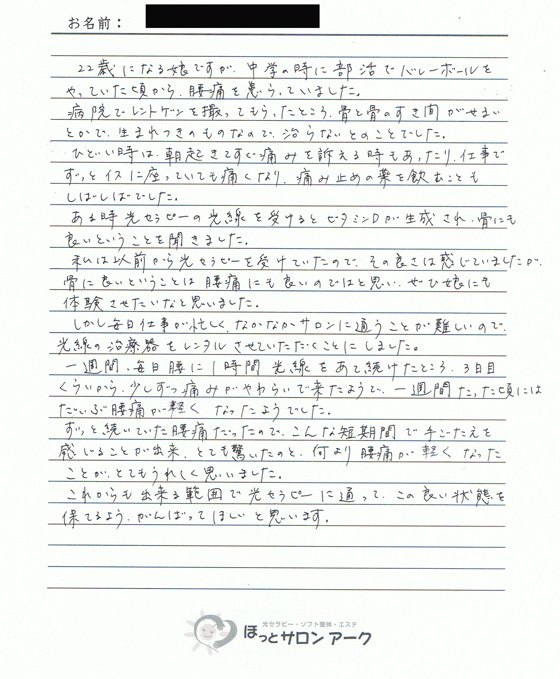 お名前：
22歳になる娘ですが、中学の時に部活でバレーボールを
やっていた頃から、腰痛を患らっていました。
病院でレントゲンを撮ってもらったところ、骨と骨のすき間がせまい
とかで、生まれつきのものなので、治らないとのことでした。
ひどい時は、朝起きてすぐ痛みを訴える時もあったり、仕事で
ずっとイスに座っていても痛くなり、痛み止めの薬を飲むことも
しばしばでした。
ある時光セラピーの光線を受けるとビタミンDが生成され、骨にも
良いということを聞きました。
私は以前から光セラピーを受けていたので、その良さは感じていましたが、
骨に良いということは腰痛にも良いのではと思い、ぜひ娘にも
体験させたいなと思いました。
しかし毎日仕事が忙しく、なかなかサロンに通うことが難しいので、
光線の治療器をレンタルさせていただくことにしました。
一週間、毎日腰に1時間光線をあて続けたところ、3日目
くらいから、少しずつ痛みがやわらいで来たようで、一週間たった頃には
だいぶ腰痛が軽くなったようでした。
ずっと続いていた腰痛だったので、こんな短期間で手ごたえを
感じることが出来、とても驚いたのと、何より腰痛が軽くなった
ことが、とてもうれしく思いました。
これからも出来る範囲で光セラピーに通って、この良い状態を
保てるよう、がんばってほしいと思います。
光セラピー・ソフト整体・エステ
ほっとサロン アーク